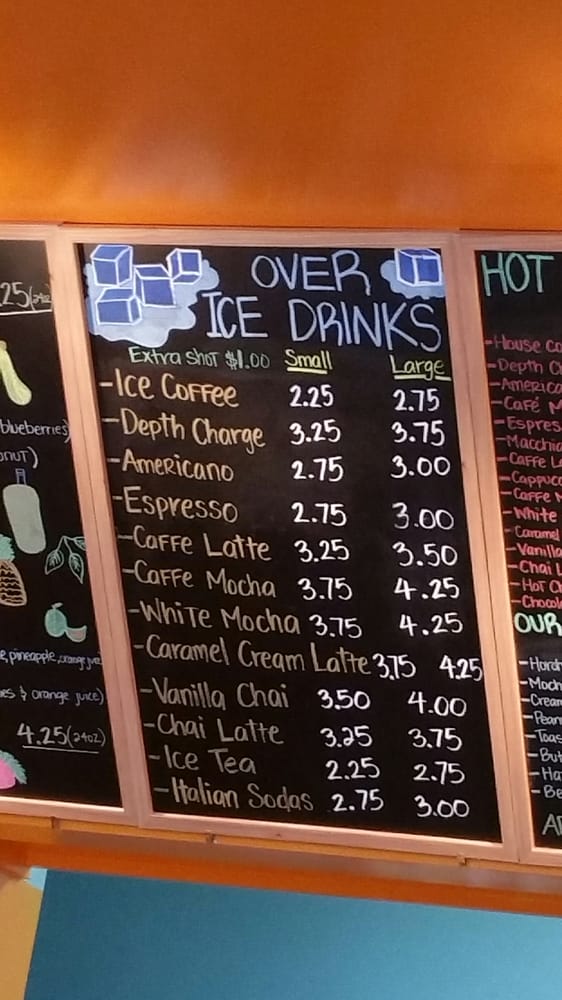 .25(24oz)
blueberries)
onut)
e, pineapple, orange juice
es & orange juice)
4.25(24oz)
OVER
ICE DRINKS
Extra shot $1.00 Small Large
-Ice Coffee 2.25 2.75
-Depth Charge 3.25 3.75
-Americano 2.75 3.00
-Espresso 2.75 3.00
-Caffe Latte 3.25 3.50
-Caffe Mocha 3.75 4.25
-White Mocha 3.75 4.25
-Caramel Cream Latte 3.75 4.25
-Vanilla Chai 3.50 4.00
-Chai Latte 3.25 3.75
-Ice Tea 2.25 2.75
-Italian Sodas 2.75 3.00
HOT
-House Co
-Depth C
-America
-Café M
-Espres
-Macchia
-Caffe La
-Cappucc
-Caffe M
-White
-Caramel
-Vanilla
-Chai L
-Hot Ch
-Chocol
OUR
-Horch
-Moch
-Cream
-Pean
-Toas
-But
-Ha
-Be